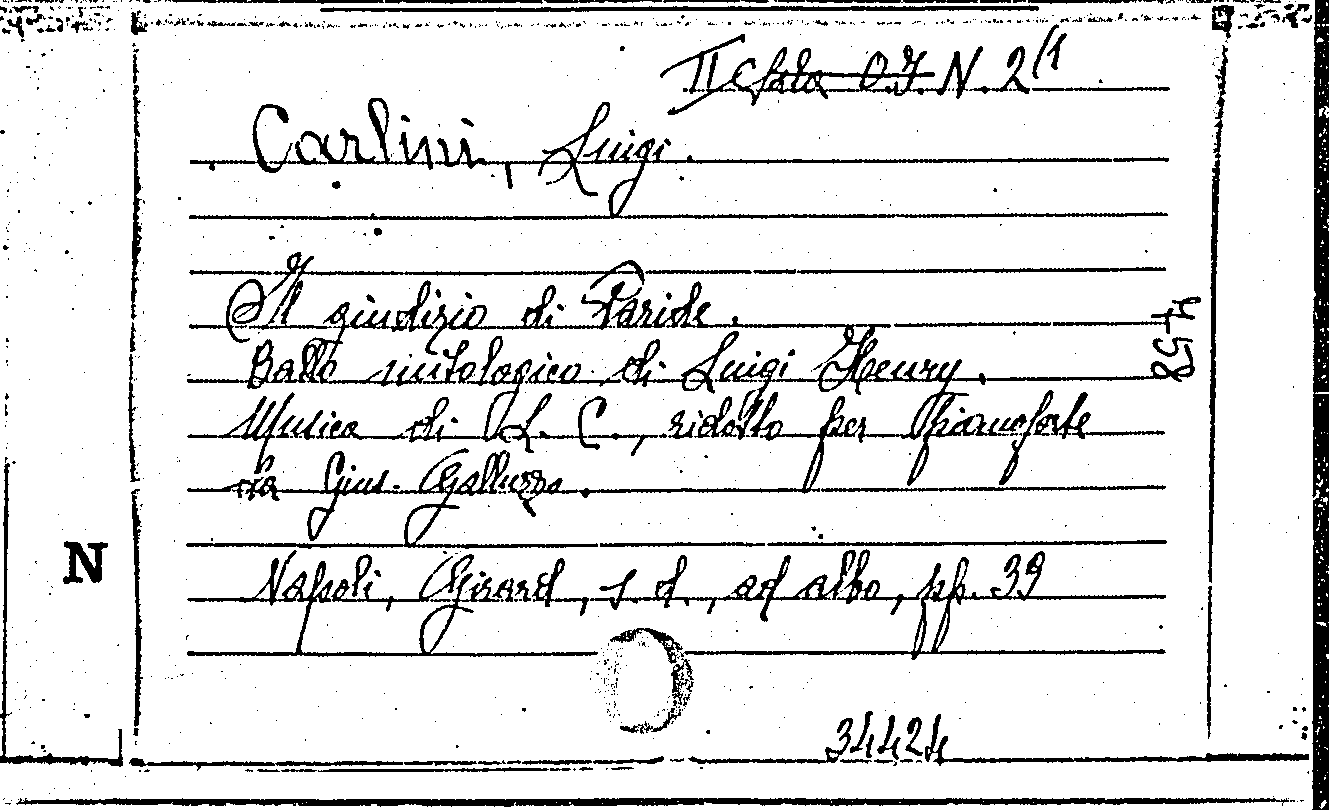 II Sala O.I. N. 2/1
Carlini, Luigi.
Il giudizio di Paride.
Ballo mitologico di Luigi Henry.
Musica di L. C., ridotto per pianoforte
da Gius. Galluzzo.
Napoli, Girard, s. d., ad albo, pp. 39
N
34424
458